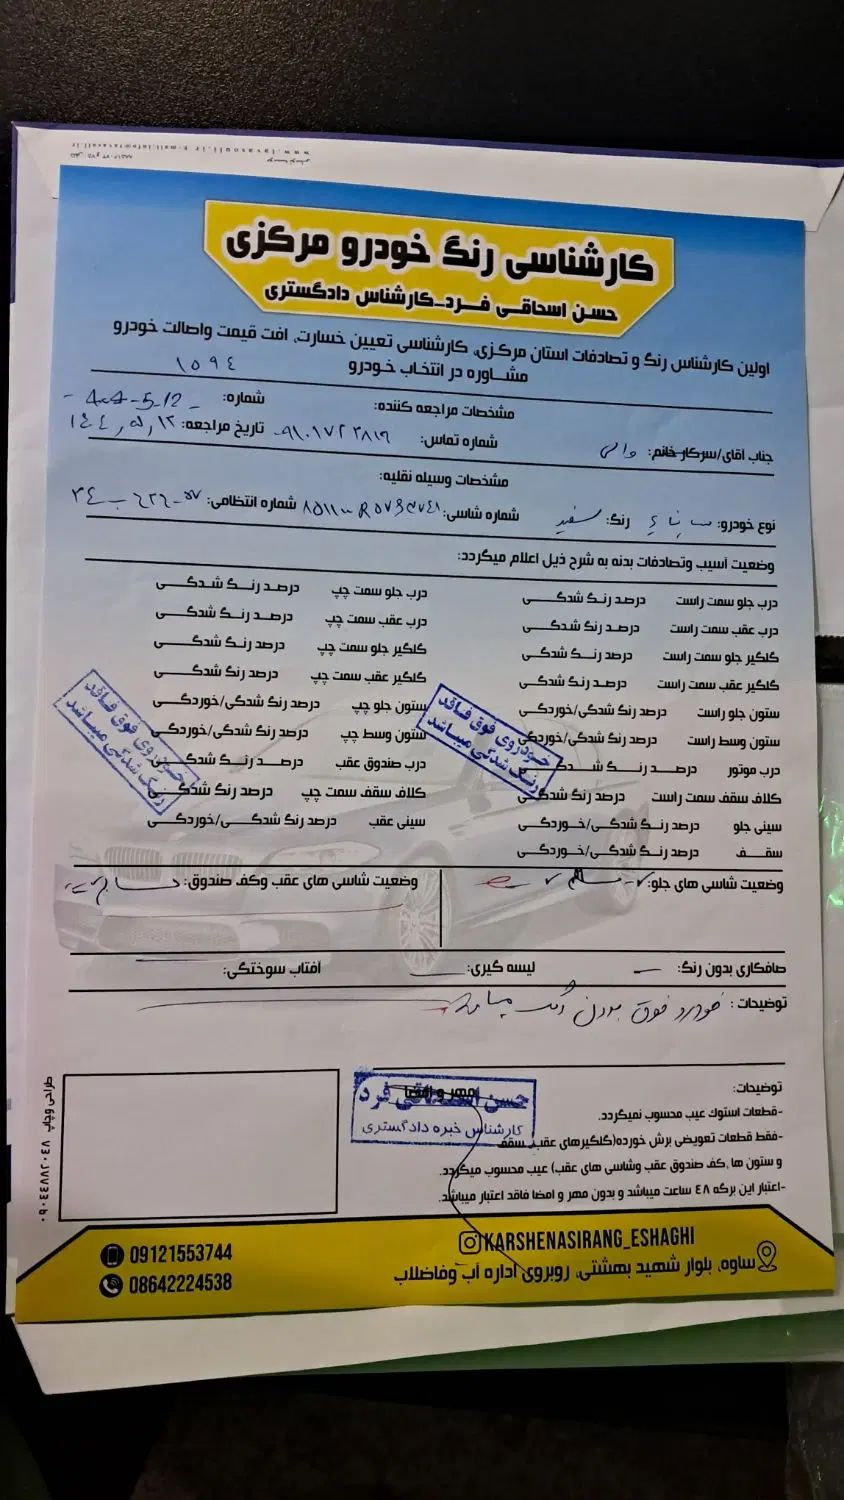 www.tavasoli.ir
کارشناسی رنگ خودرو مرکزی
حسن اسحاقی فرد-کارشناس دادگستری
اولین کارشناس رنگ و تصادفات استان مرکزی، کارشناسی تعیین خسارت، افت قیمت واصالت خودرو
مشاوره در انتخاب خودرو
۱۵۹٤
مشخصات مراجعه کننده:
شماره:
جناب آقای/سرکار خانم:
شماره تماس:
تاریخ مراجعه:
مشخصات وسیله نقلیه:
نوع خودرو: رنگ: سفید شماره شاسی: شماره انتظامی:
وضعیت آسیب وتصادفات بدنه به شرح ذیل اعلام میگردد:
درب جلو سمت راست درصد رنگ شدگی درب جلو سمت چپ درصد رنگ شدگی
درب عقب سمت راست درصد رنگ شدگی درب عقب سمت چپ درصد رنگ شدگی
گلگیر جلو سمت راست درصد رنگ شدگی گلگیر جلو سمت چپ درصد رنگ شدگی
گلگیر عقب سمت راست درصد رنگ شدگی گلگیر عقب سمت چپ درصد رنگ شدگی
ستون جلو راست درصد رنگ شدگی/خوردگی ستون جلو چپ درصد رنگ شدگی/خوردگی
ستون وسط راست درصد رنگ شدگی/خوردگی ستون وسط چپ درصد رنگ شدگی/خوردگی
درب موتور درصد رنگ شدگی درب صندوق عقب درصد رنگ شدگی
کلاف سقف سمت راست درصد رنگ شدگی کلاف سقف سمت چپ درصد رنگ شدگی
سینی جلو درصد رنگ شدگی/خوردگی سینی عقب درصد رنگ شدگی/خوردگی
سقف درصد رنگ شدگی/خوردگی
خودروی فوق فاقد
رنگ شدگی میباشد
خودروی فوق فاقد
رنگ شدگی میباشد
وضعیت شاسی های جلو: سالم وضعیت شاسی های عقب وکف صندوق: سالم
صافکاری بدون رنگ: لیسه گیری: آفتاب سوختگی:
توضیحات: خودرو فوق بدون رنگ میباشد
توضیحات:
-قطعات استوک عیب محسوب نمیگردد.
-فقط قطعات تعویضی برش خورده(گلگیرهای عقب، سقف
و ستون ها ,کف صندوق عقب وشاسی های عقب) عیب محسوب میگردد.
-اعتبار این برگه ٤٨ ساعت میباشد و بدون مهر و امضا فاقد اعتبار میباشد.
مهر و امضا
حسن اسحاقی فرد
کارشناس خبره دادگستری
طراحی وچاپ ۰۹۰٤٤۸۸۲۰٤۸
KARSHENASIRANG_ESHAGHI
ساوه، بلوار شهید بهشتی، روبروی اداره آب وفاضلاب
09121553744
08642224538